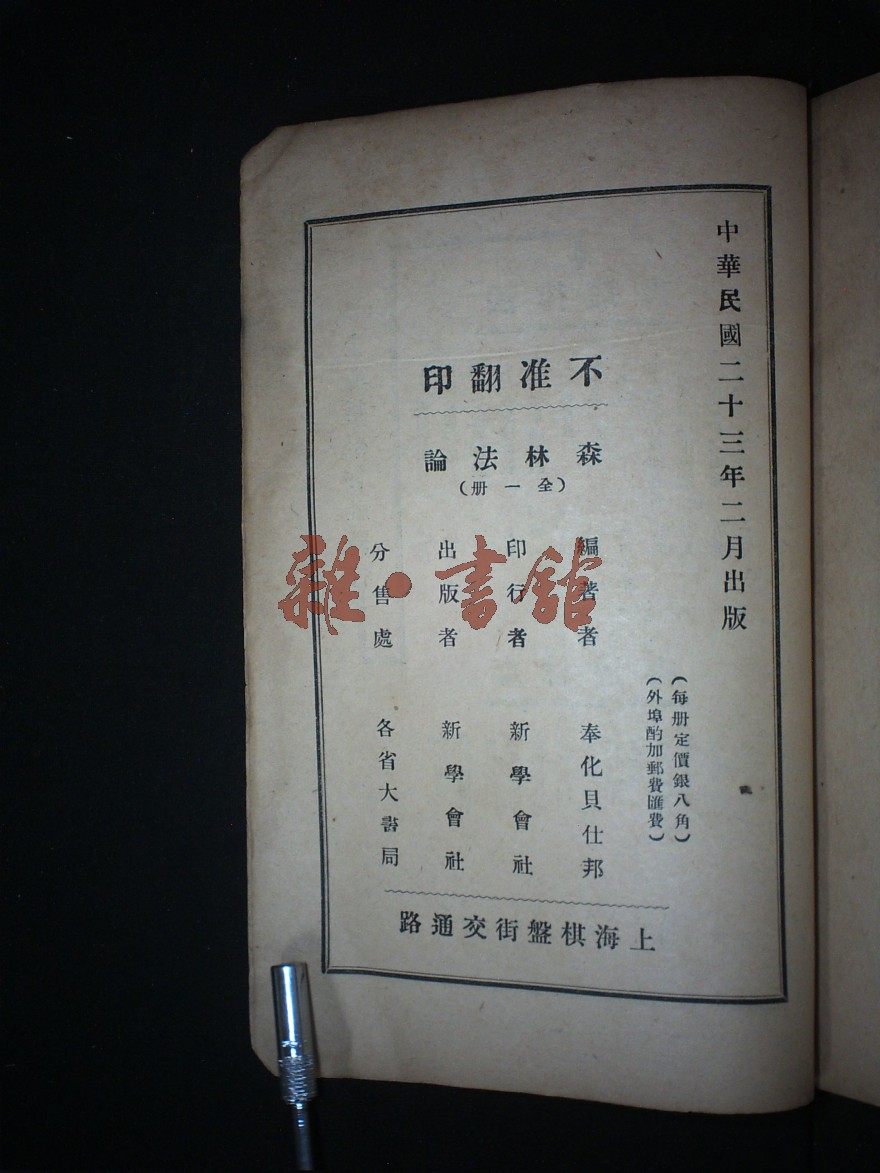 中華民國二十三年二月出版
(每册定價銀八角)
(外埠酌加郵費匯費)
不准翻印
森林法論
(全一册)
編著者 奉化貝仕邦
印行者 新學會社
出版者 新學會社
分售處 各省大書局
上海棋盤街交通路
雜·書館